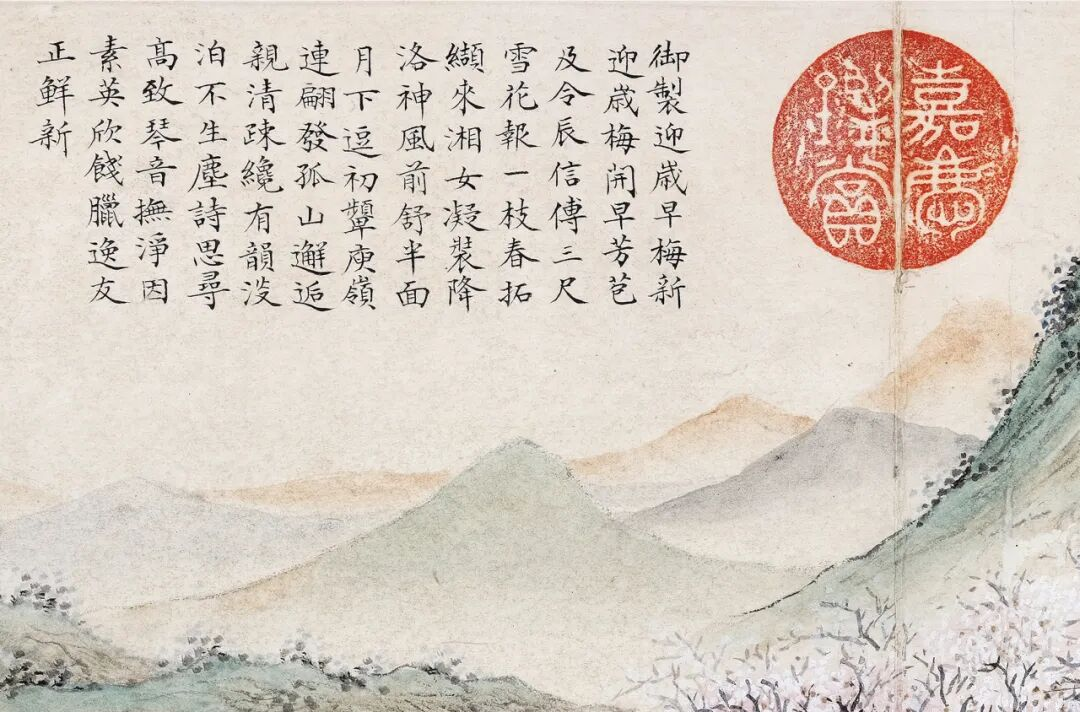 嘉慶
鑑賞
御製迎嵗早梅新
迎嵗梅開早芳苞
及令辰信傳三尺
雪花報一枝春拓
纈來湘女凝裝降
洛神風前舒半面
月下逗初顰庾嶺
連翩發孤山邂逅
親清疎纔有韻淡
泊不生塵詩思尋
髙致琴音撫淨因
素英欣餞臘逸友
正鮮新